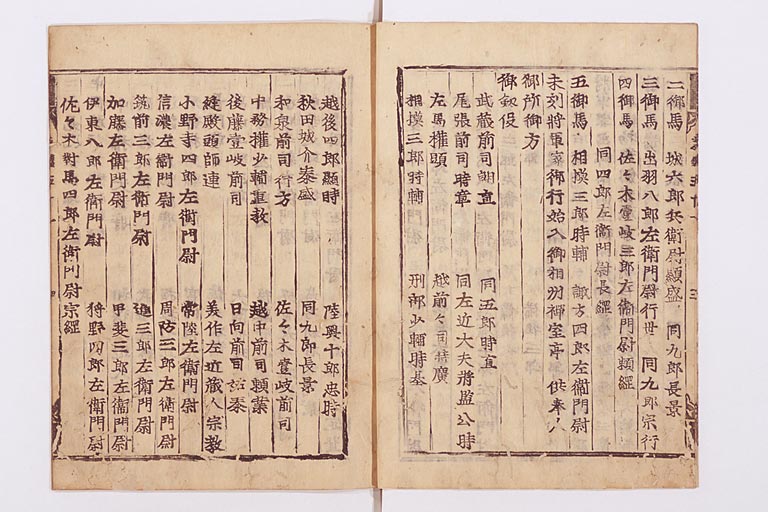 二御馬 城六郎兵衛尉顯盛 同九郎長景
三御馬 出羽八郎左衛門尉行世 同九郎宗行
四御馬 佐々木壹岐三郎左衛門尉頼經
同四郎左衛門尉長經
五御馬 相摸三郎時輔 諏方四郎左衛門尉
未刻將軍家御行始入御相州御亭供奉人
御所御方
御釼役
武藏前司朝直 同五郎時直
尾張前司時章 同左近大夫將監公時
左馬權頭 越前々司時廣
相摸三郎時輔 刑部少輔時基
越後四郎顯時 陸奥十郎忠時
秋田城介泰盛 同九郎長景
和泉前司行方 佐々木壹岐前司
中務權少輔重教 越中前司頼業
後藤壹岐前司 日向前司祐泰
縫殿頭師連 美作左近藏人宗教
小野寺四郎左衛門尉 常陸左衛門尉
信濃左衛門尉 周防三郎左衛門尉
筑前三郎左衛門尉 進三郎左衛門尉
加藤左衛門尉 甲斐三郎左衛門尉
伊東八郎左衛門尉 狩野四郎左衛門尉
佐々木對馬四郎左衛門尉宗經